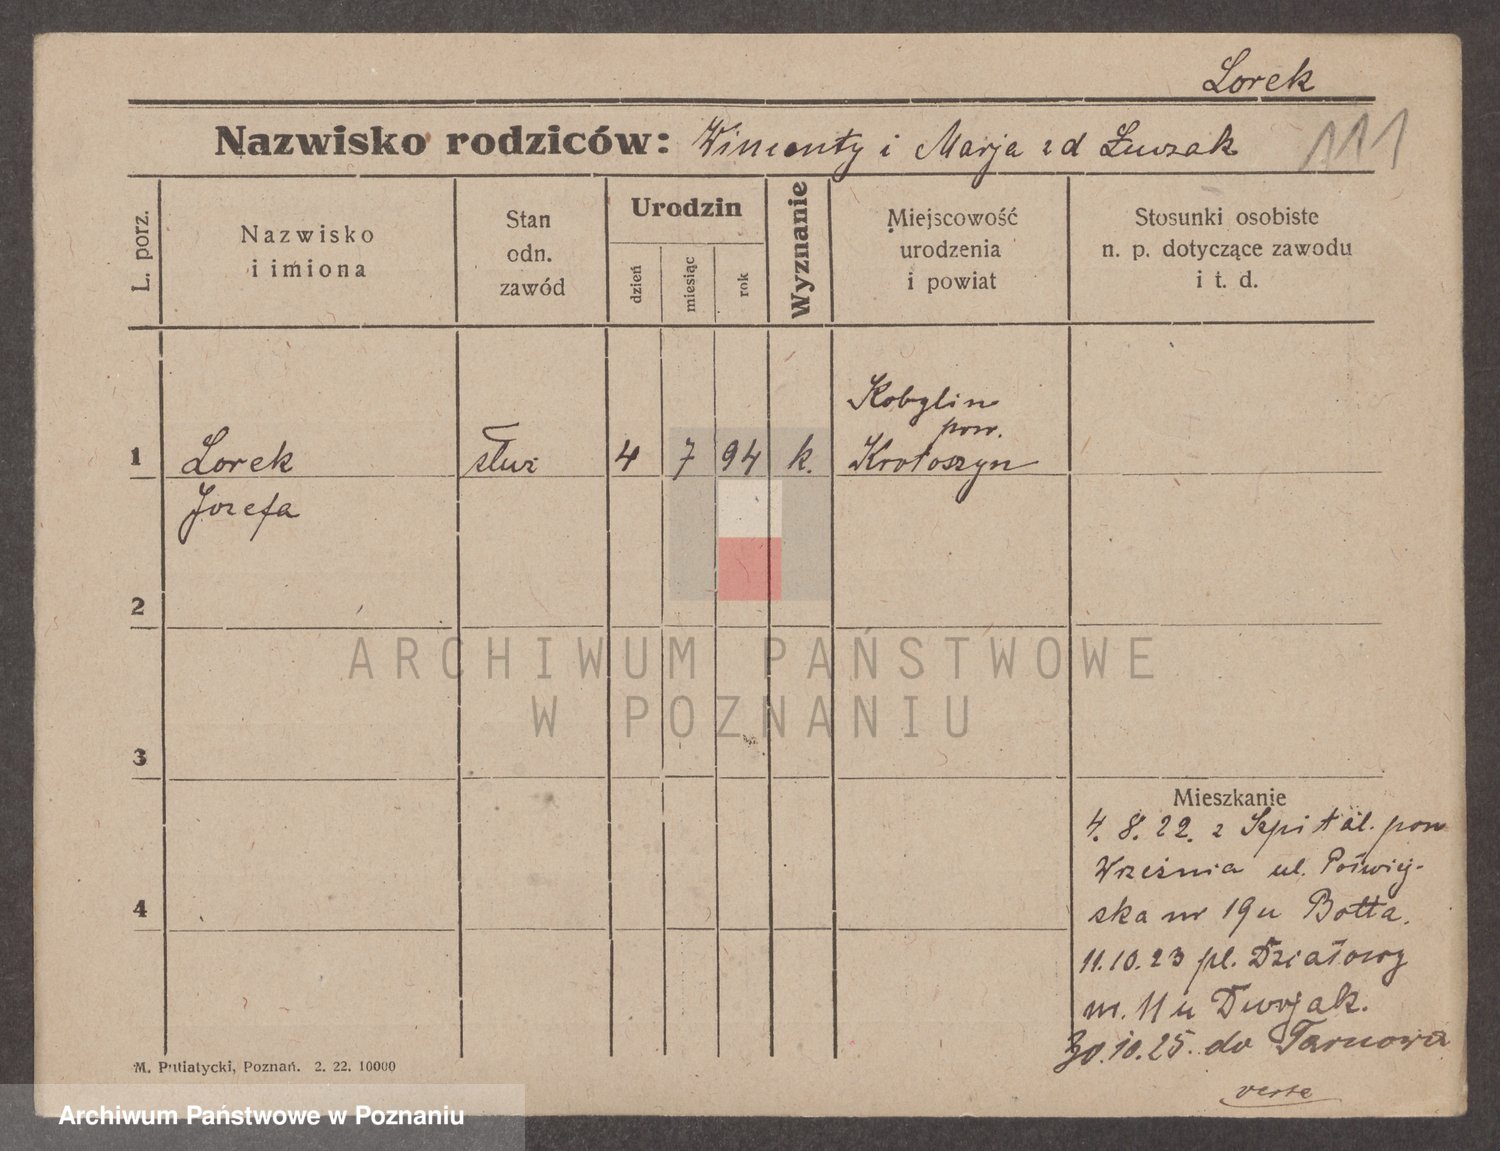 Lorek
Nazwisko rodziców: Wincenty i Marja z d
111
L. porz.
Nazwisko
i imiona
Stan
odn.
zawód
Urodzin
dzień
miesiąc
rok
Wyznanie
Miejscowość
urodzenia
i powiat
Stosunki osobiste
n. p. dotyczące zawodu
i t. d.
Kobylin
pow.
1 Lorek służ 4 7 94 k. Krotoszyn
Jozefa
2
ARCHIWUM PAŃSTWOWE
W POZNANIU
3
Mieszkanie
4. 8. 22. z Szpitál. pow
Września ul.
ska nr 19 u Botta.
4
11.10.23 pl. Działowy
m. 11 u
30.10.25. do Tarnowa
verte
M. Putiatycki, Poznań. 2. 22. 10000
Archiwum Państwowe w Poznaniu